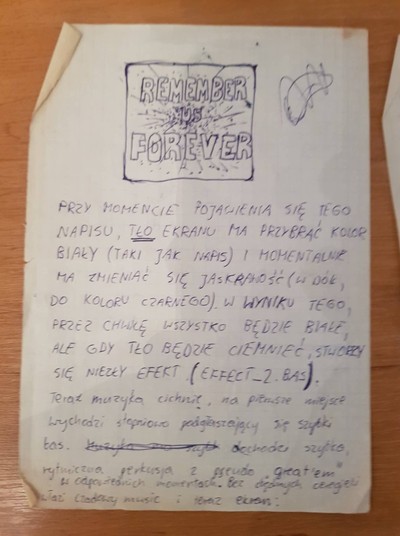 REMEMBER
US
FOREVER
PRZY MOMENCIE POJAWIENIA SIĘ TEGO
NAPISU, TŁO EKRANU MA PRZYBRAĆ KOLOR
BIAŁY (TAKI JAK NAPIS) I MOMENTALNIE
MA ZMIENIAĆ SIĘ JASKRAWOŚĆ (W DÓŁ,
DO KOLORU CZARNEGO). W WYNIKU TEGO,
PRZEZ CHWILĘ WSZYSTKO BĘDZIE BIAŁE,
ALE GDY TŁO BĘDZIE CIEMNIEĆ, STWORZY
SIĘ NIEZŁY EFEKT. (EFFECT_2.BAS).
Teraz muzyka cichnie, na pierwsze miejsce
wychodzi stopniowo podgłaszający się szybki
bas. dochodzi szybka,
rytmiczna perkusja z pseudo
w odpowiednich momentach. Bez
i teraz ekran: